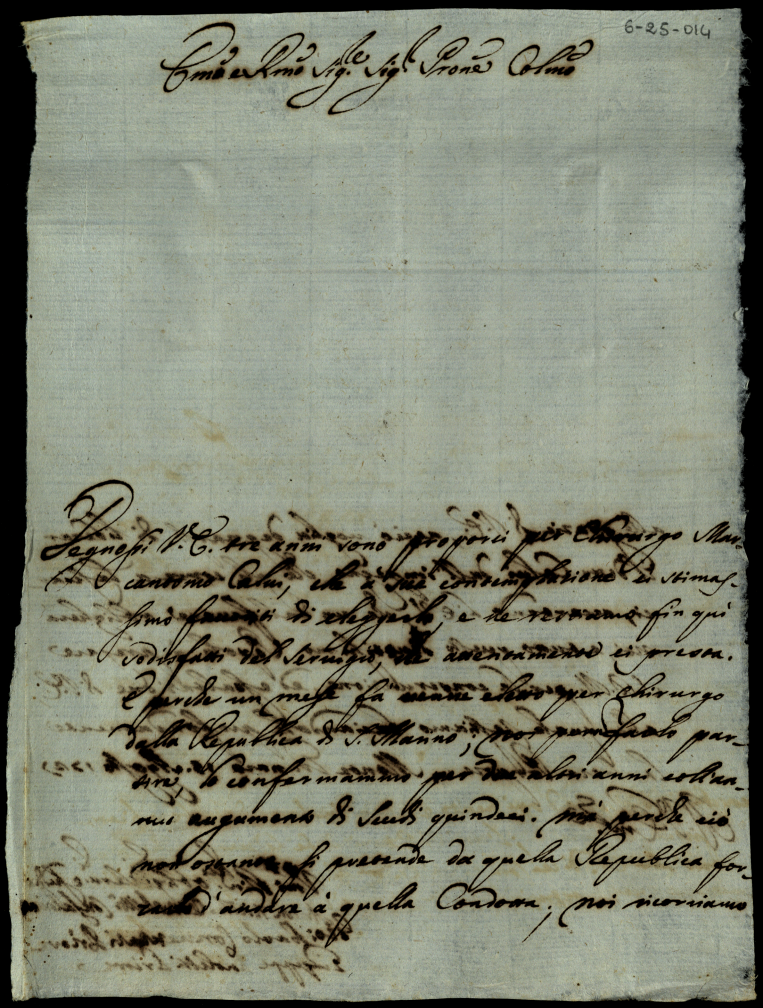 6-25-014
Emo e Rmo Sig.re Sig.r Prone Colmo
Degnossi V.E. tre anni sono proporci per Chirurgo Mar-
cantonio Calvi, che à sua contemplazione ci stimas-
simo favoriti di eleggerlo, e ne restiamo fin quì
sodisfatti del servigio, che attentamente ci presta.
E perche un mese fà venne eletto per Chirurgo
dalla Republica di S. Marino; noi per non farlo par-
tire, lo confermammo per due altri anni coll'an-
nuo augumento di Scudi quindeci. mà perche ciò
non ostante si pretende da quella Republica for-
zarlo d'andare à quella Condotta; noi ricorriamo